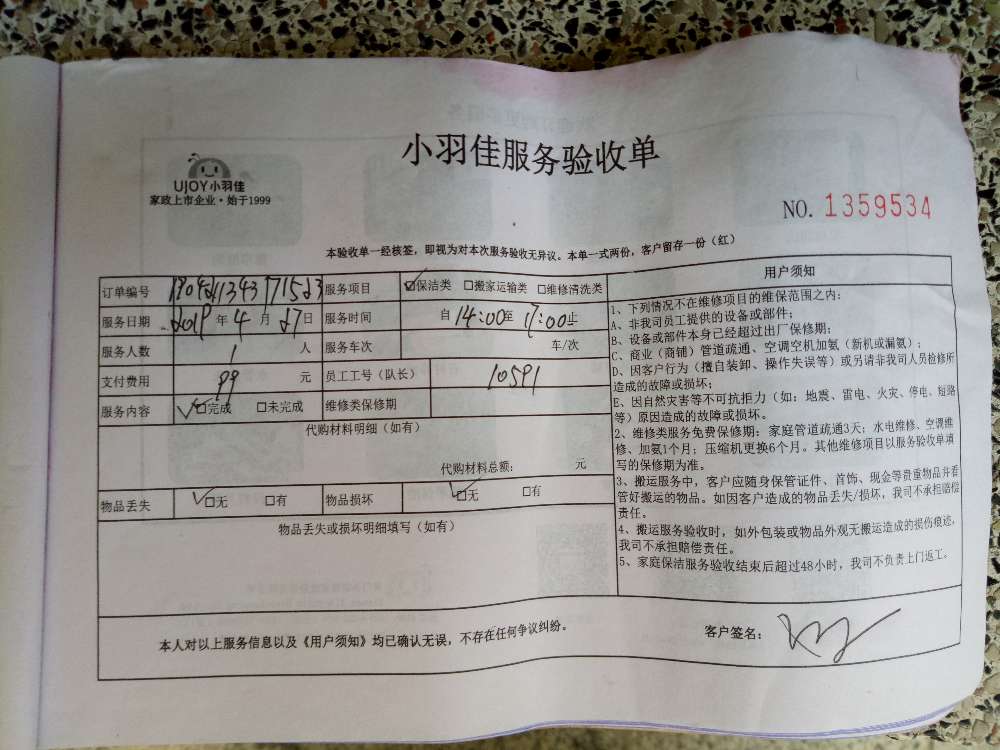 小羽佳服务验收单
UJOY小羽佳
家政上市企业·始于1999
NO. 1359534
本验收单一经核签，即视为对本次服务验收无异议。本单一式两份，客户留存一份（红）
订单编号 服务项目 ☑保洁类 □搬家运输类 □维修清洗类
服务日期 2019 年 4 月 27 日 服务时间 自 14:00 至 17:00 止
服务人数 1 人 服务车次 车/次
支付费用 99 元 员工工号（队长） 10591
服务内容 ☑完成 □未完成 维修类保修期
代购材料明细（如有）
代购材料总额： 元
物品丢失 ☑无 □有 物品损坏 ☑无 □有
物品丢失或损坏明细填写（如有）
用户须知
1、下列情况不在维修项目的维保范围之内：
A、非我司员工提供的设备或部件；
B、设备或部件本身已经超过出厂保修期；
C、商业（商铺）管道疏通、空调空机加氨（新机或漏氨）；
D、因客户行为（擅自装卸、操作失误等）或另请非我司人员检修所
造成的故障或损坏；
E、因自然灾害等不可抗拒力（如：地震、雷电、火灾、停电、短路
等）原因造成的故障或损坏。
2、维修类服务免费保修期：家庭管道疏通3天；水电维修、空调维
修、加氨1个月；压缩机更换6个月。其他维修项目以服务验收单填
写的保修期为准。
3、搬运服务中，客户应随身保管证件、首饰、现金等贵重物品并看
管好搬运的物品。如因客户造成的物品丢失/损坏，我司不承担赔偿
责任。
4、搬运服务验收时，如外包装或物品外观无搬运造成的损伤痕迹，
我司不承担赔偿责任。
5、家庭保洁服务验收结束后超过48小时，我司不负责上门返工。
本人对以上服务信息以及《用户须知》均已确认无误，不存在任何争议纠纷。
客户签名：